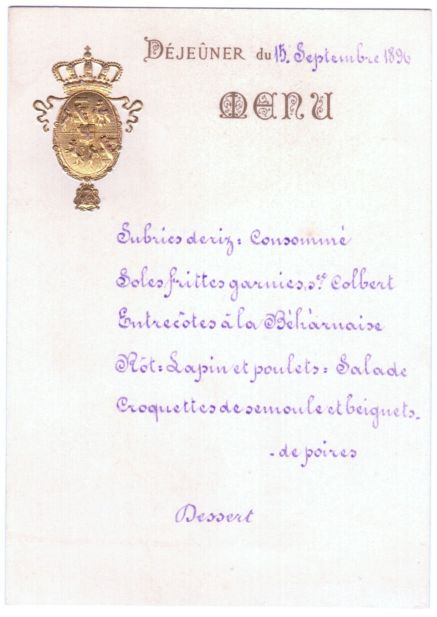 DÉJEÛNER du 15. Septembre 1896
MENU
Subries de riz = Consommé
Soles frittes garnies, sce Colbert
Entrecôtes à la Béhârnaise
Rôt = Lapin et poulets = Salade
Croquettes de semoule et beignets-
- de poires
Dessert